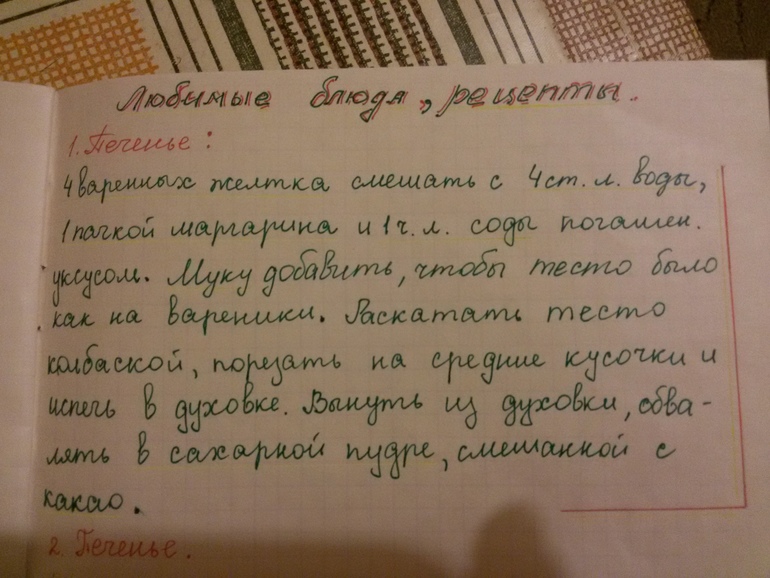 Любимые блюда, рецепты.
1. Печенье:
4 варенных желтка смешать с 4 ст. л. воды,
1 пачкой маргарина и 1 ч. л. соды погашен.
уксусом. Муку добавить, чтобы тесто было
как на вареники. Раскатать тесто
колбаской, порезать на средние кусочки и
испечь в духовке. Вынуть из духовки, обва-
лять в сахарной пудре, смешанной с
какао.
2. Печенье.